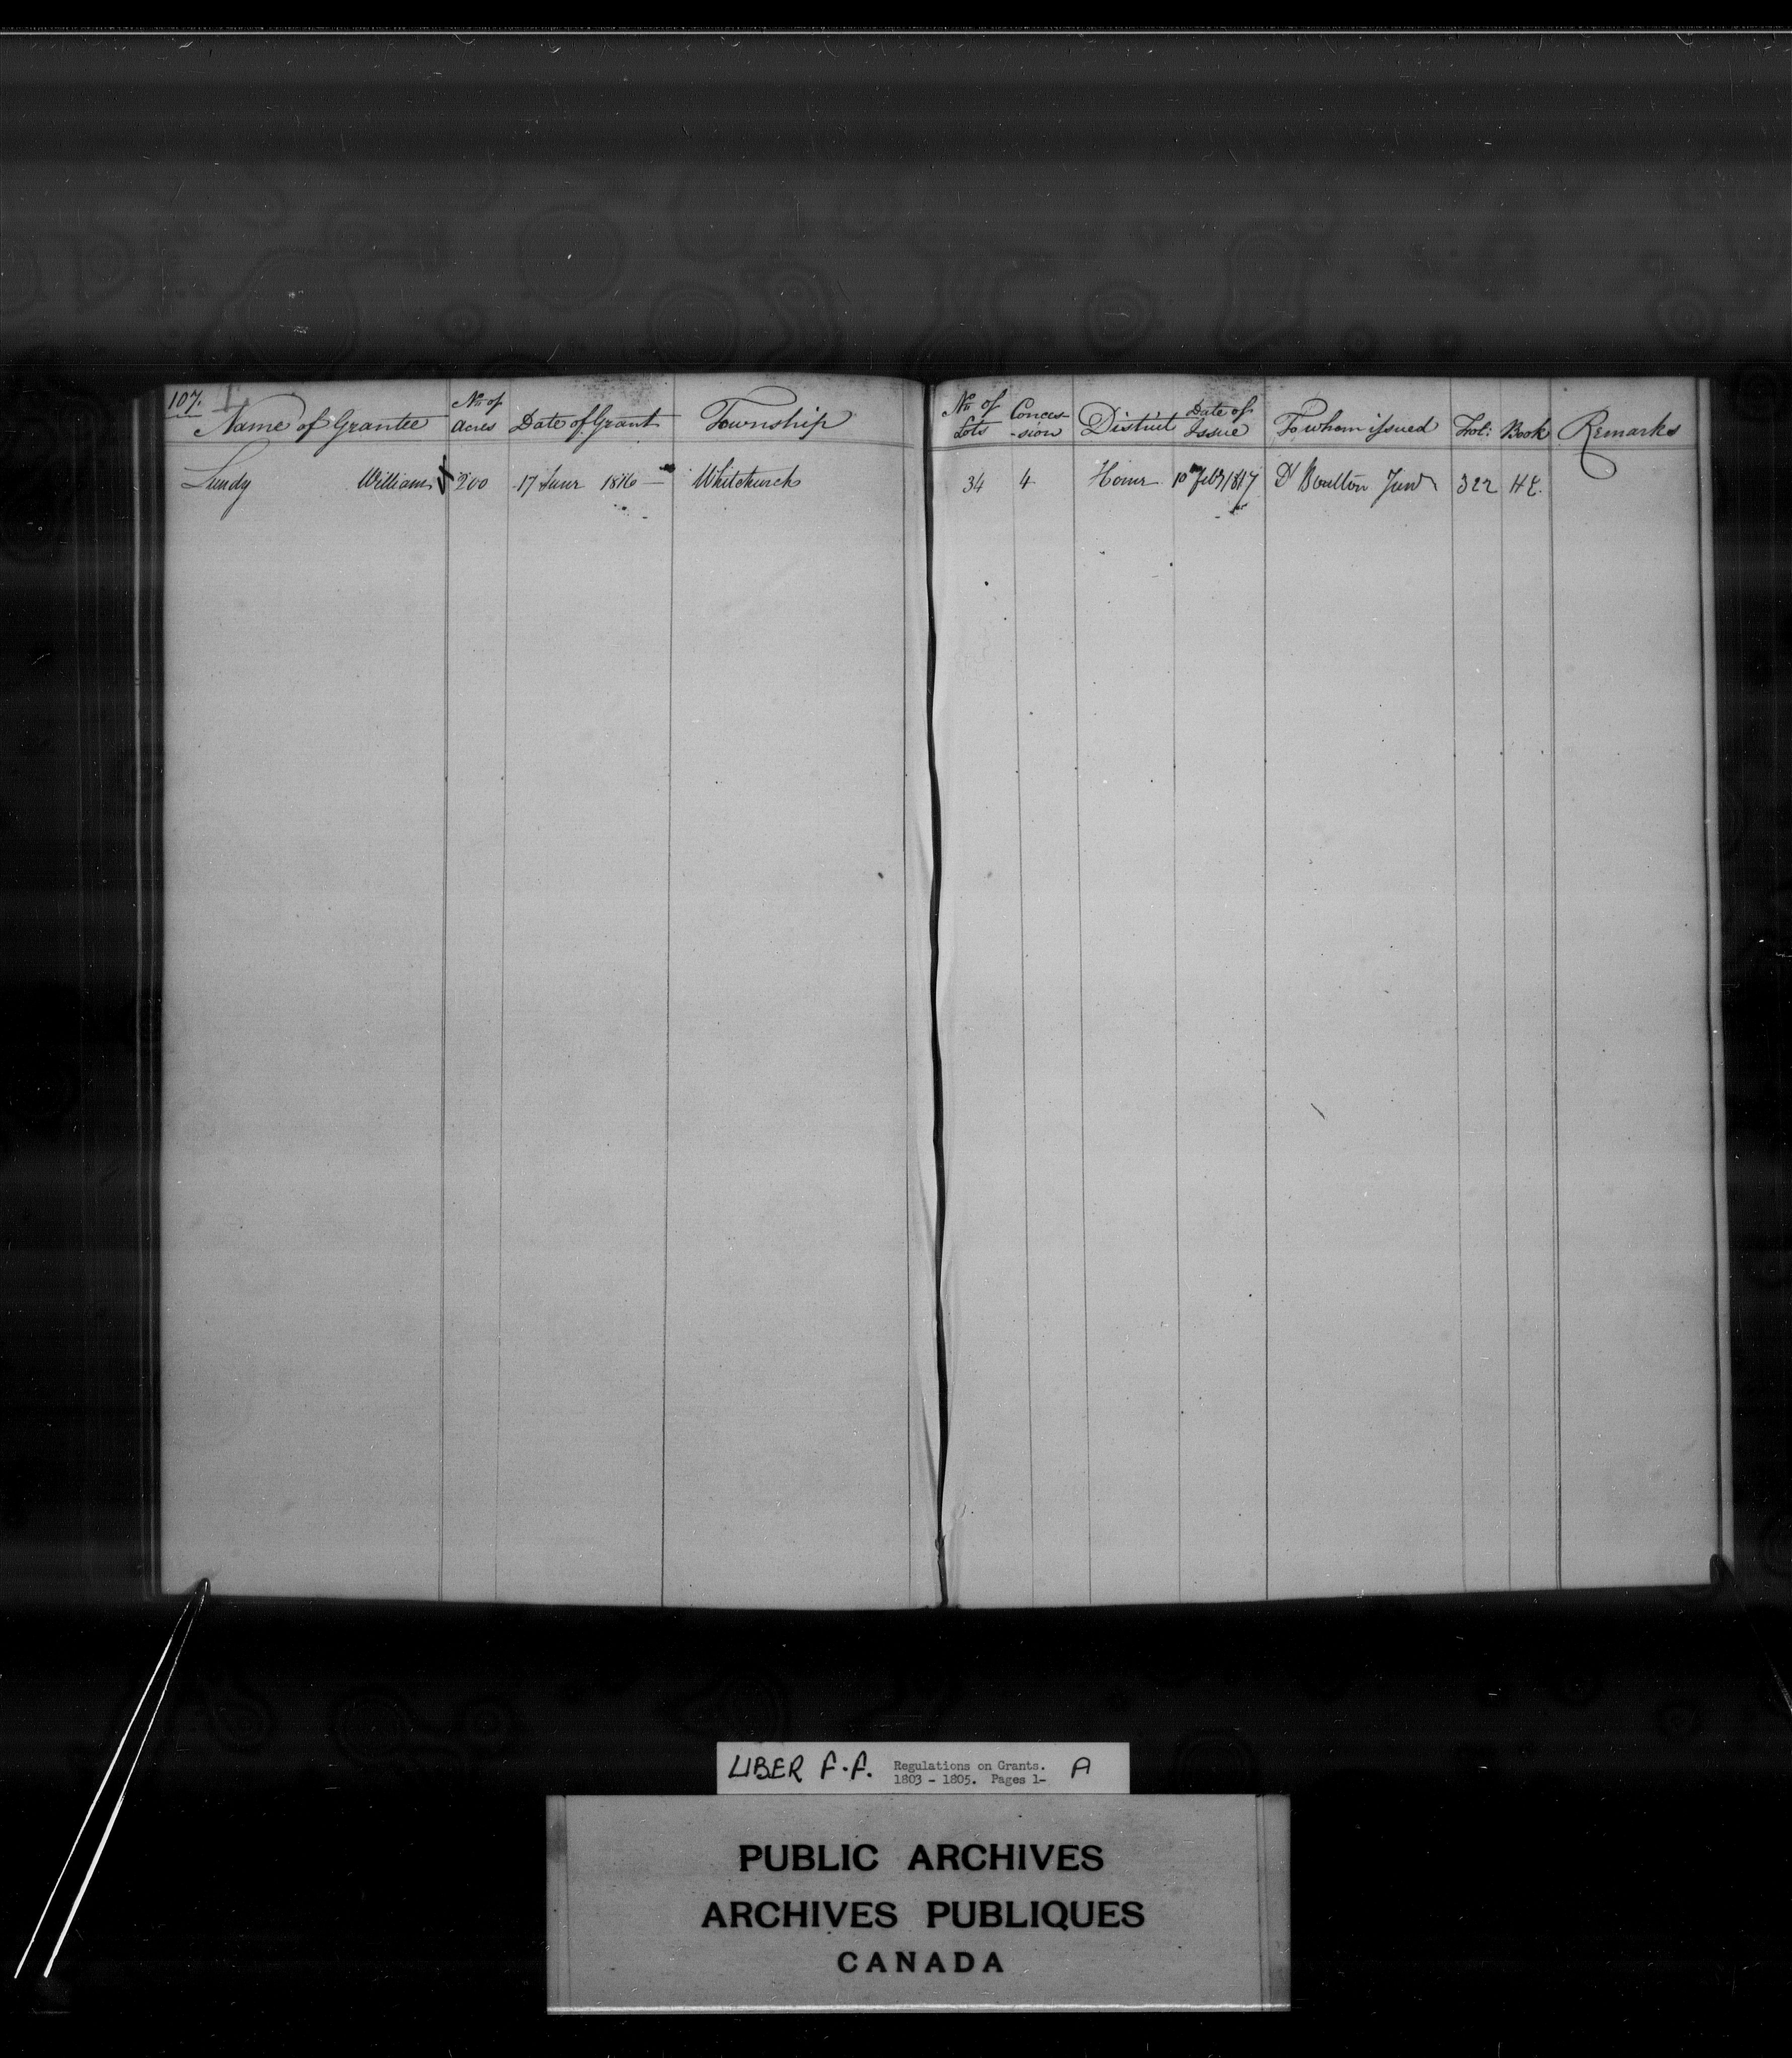 107. L
Name of Grantee No of Acres Date of Grant Township No of Lots Conces-sion District Date of Issue To whom issued Fol: Book Remarks
Lundy William 200 17 June 1816 — Whitchurch 34 4 Home 10 Feby 1817 D Boulton Junr 322 H E.
LIBER F.F. Regulations on Grants. A
1803 - 1805. Pages 1-
PUBLIC ARCHIVES
ARCHIVES PUBLIQUES
CANADA